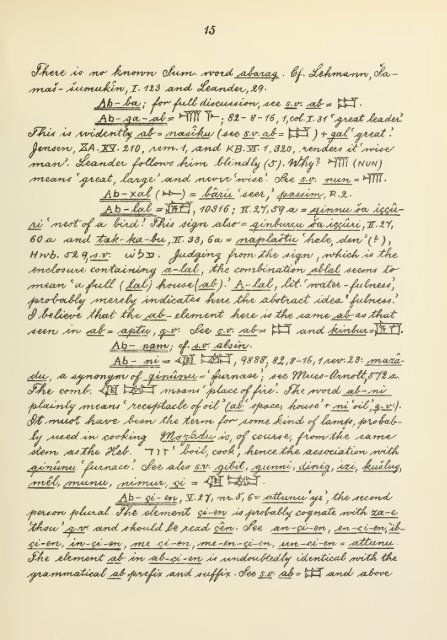 15
There is no known Sum. word abarag. Cf. Lehmann, Ša-
maš-šumukîn, I. 123 and Leander, 29.
Ab-ba; for full discussion, see s.v. ab =
Ab-ga-al = 82-8-16, 1, col. I. 31 'great leader.'
This is evidently ab = našîku (see s.v. ab = ) + gal 'great.'
Jensen, ZA. XV. 210, rem. 1, and KB. VI. 1. 320, renders it 'wise
man'. Leander follows him blindly (5). Why? (NUN)
means 'great, large' and never 'wise'. See s.v. nun =
Ab-xal ( ) = bârû 'seer,' passim, R. 2.
Ab-lal = , 10316; II. 27, 59a = qinnu ša iççû-
ri 'nest of a bird.' This sign also = qinburru ša iççûri, II. 27,
60a and tak-ka-bu, II. 33, 6a = naplaštu 'hole, den' (?),
Hwb. 529, s.v. פלש. Judging from the sign, which is the
enclosure containing a-lal, the combination ablal seems to
mean 'a full (lal) house (ab).' A-lal, lit. 'water-fulness,'
probably merely indicates here the abstract idea 'fulness.'
I believe that the ab-element here is the same ab as that
seen in ab = aptu, q.v. See s.v. ab = and kinbur =
Ab-nam, cf. s.v. absin.
Ab-ni = , 9888, 82, 8-16, 1 rev. 23: mazâ-
du, a synonym of ginûnu = 'furnace'; see Muss-Arnolt, 572a.
The comb. means 'place of fire'. The word ab-ni
plainly means 'receptacle of oil' (ab 'space, house' + ni 'oil', q.v.).
It must have been the term for some kind of lamp, probab-
ly used in cooking Mazâdu is, of course, from the same
stem as the Heb. זוד 'boil, cook', hence the association with
ginûnu 'furnace'. See also s.v. gibil, gunni, dinig, izi, kušlug,
mêl, munu, nimur, çi =
Ab-çi-en, V. 27, nr. 5, 6 = attunu 'ye', the second
person plural. The element çi-en is probably cognate with za-e
'thou' q.v. and should be read çên. See an-çi-en, en-çi-en, ib-
çi-en, in-çi-en, me-çi-en, me-en-çi-en, un-çi-en = attunu.
The element ab in ab-çi-en is undoubtedly identical with the
grammatical ab prefix and suffix. See s.v. ab = and above